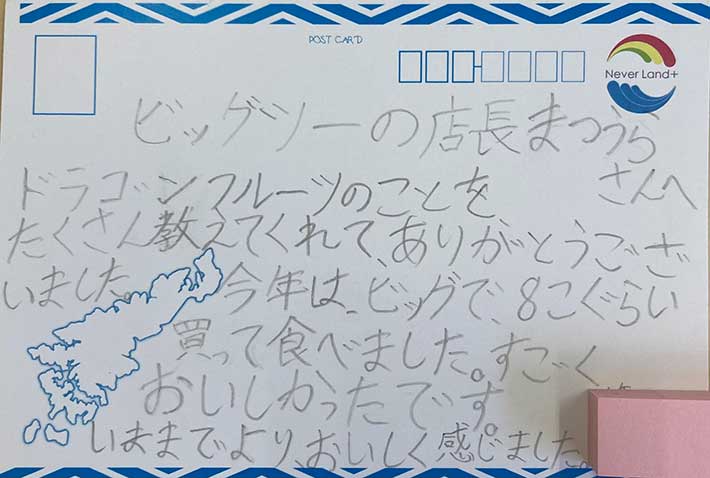 POST CARD
Never Land+
ビッグツーの店長まつうら
さんへ
ドラゴンフルーツのことを、
たくさん教えてくれて、ありがとうござ
いました。
今年は、ビッグで、8こぐらい
買って食べました。すごく
おいしかったです。
いままでより、おいしく感じました。